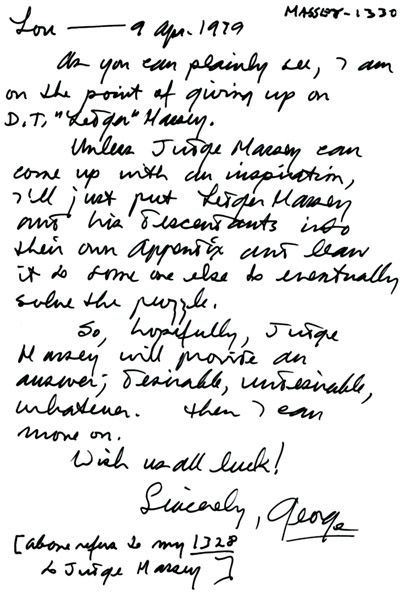 MASSEY-1330
Lou — 9 Apr. 1979
As you can plainly see, I am
on the point of giving up on
D.T. "Ledger" Massey.
Unless Judge Massey can
come up with an inspiration,
I'll just put Ledger Massey
and his descendants into
their own Appendix and leave
it to some one else to eventually
solve the puzzle.
So, hopefully, Judge
Massey will provide an
answer; desirable, undesirable,
whatever. Then I can
move on.
Wish us all luck!
Sincerely, George
[above refers to my 1328
to Judge Massey]